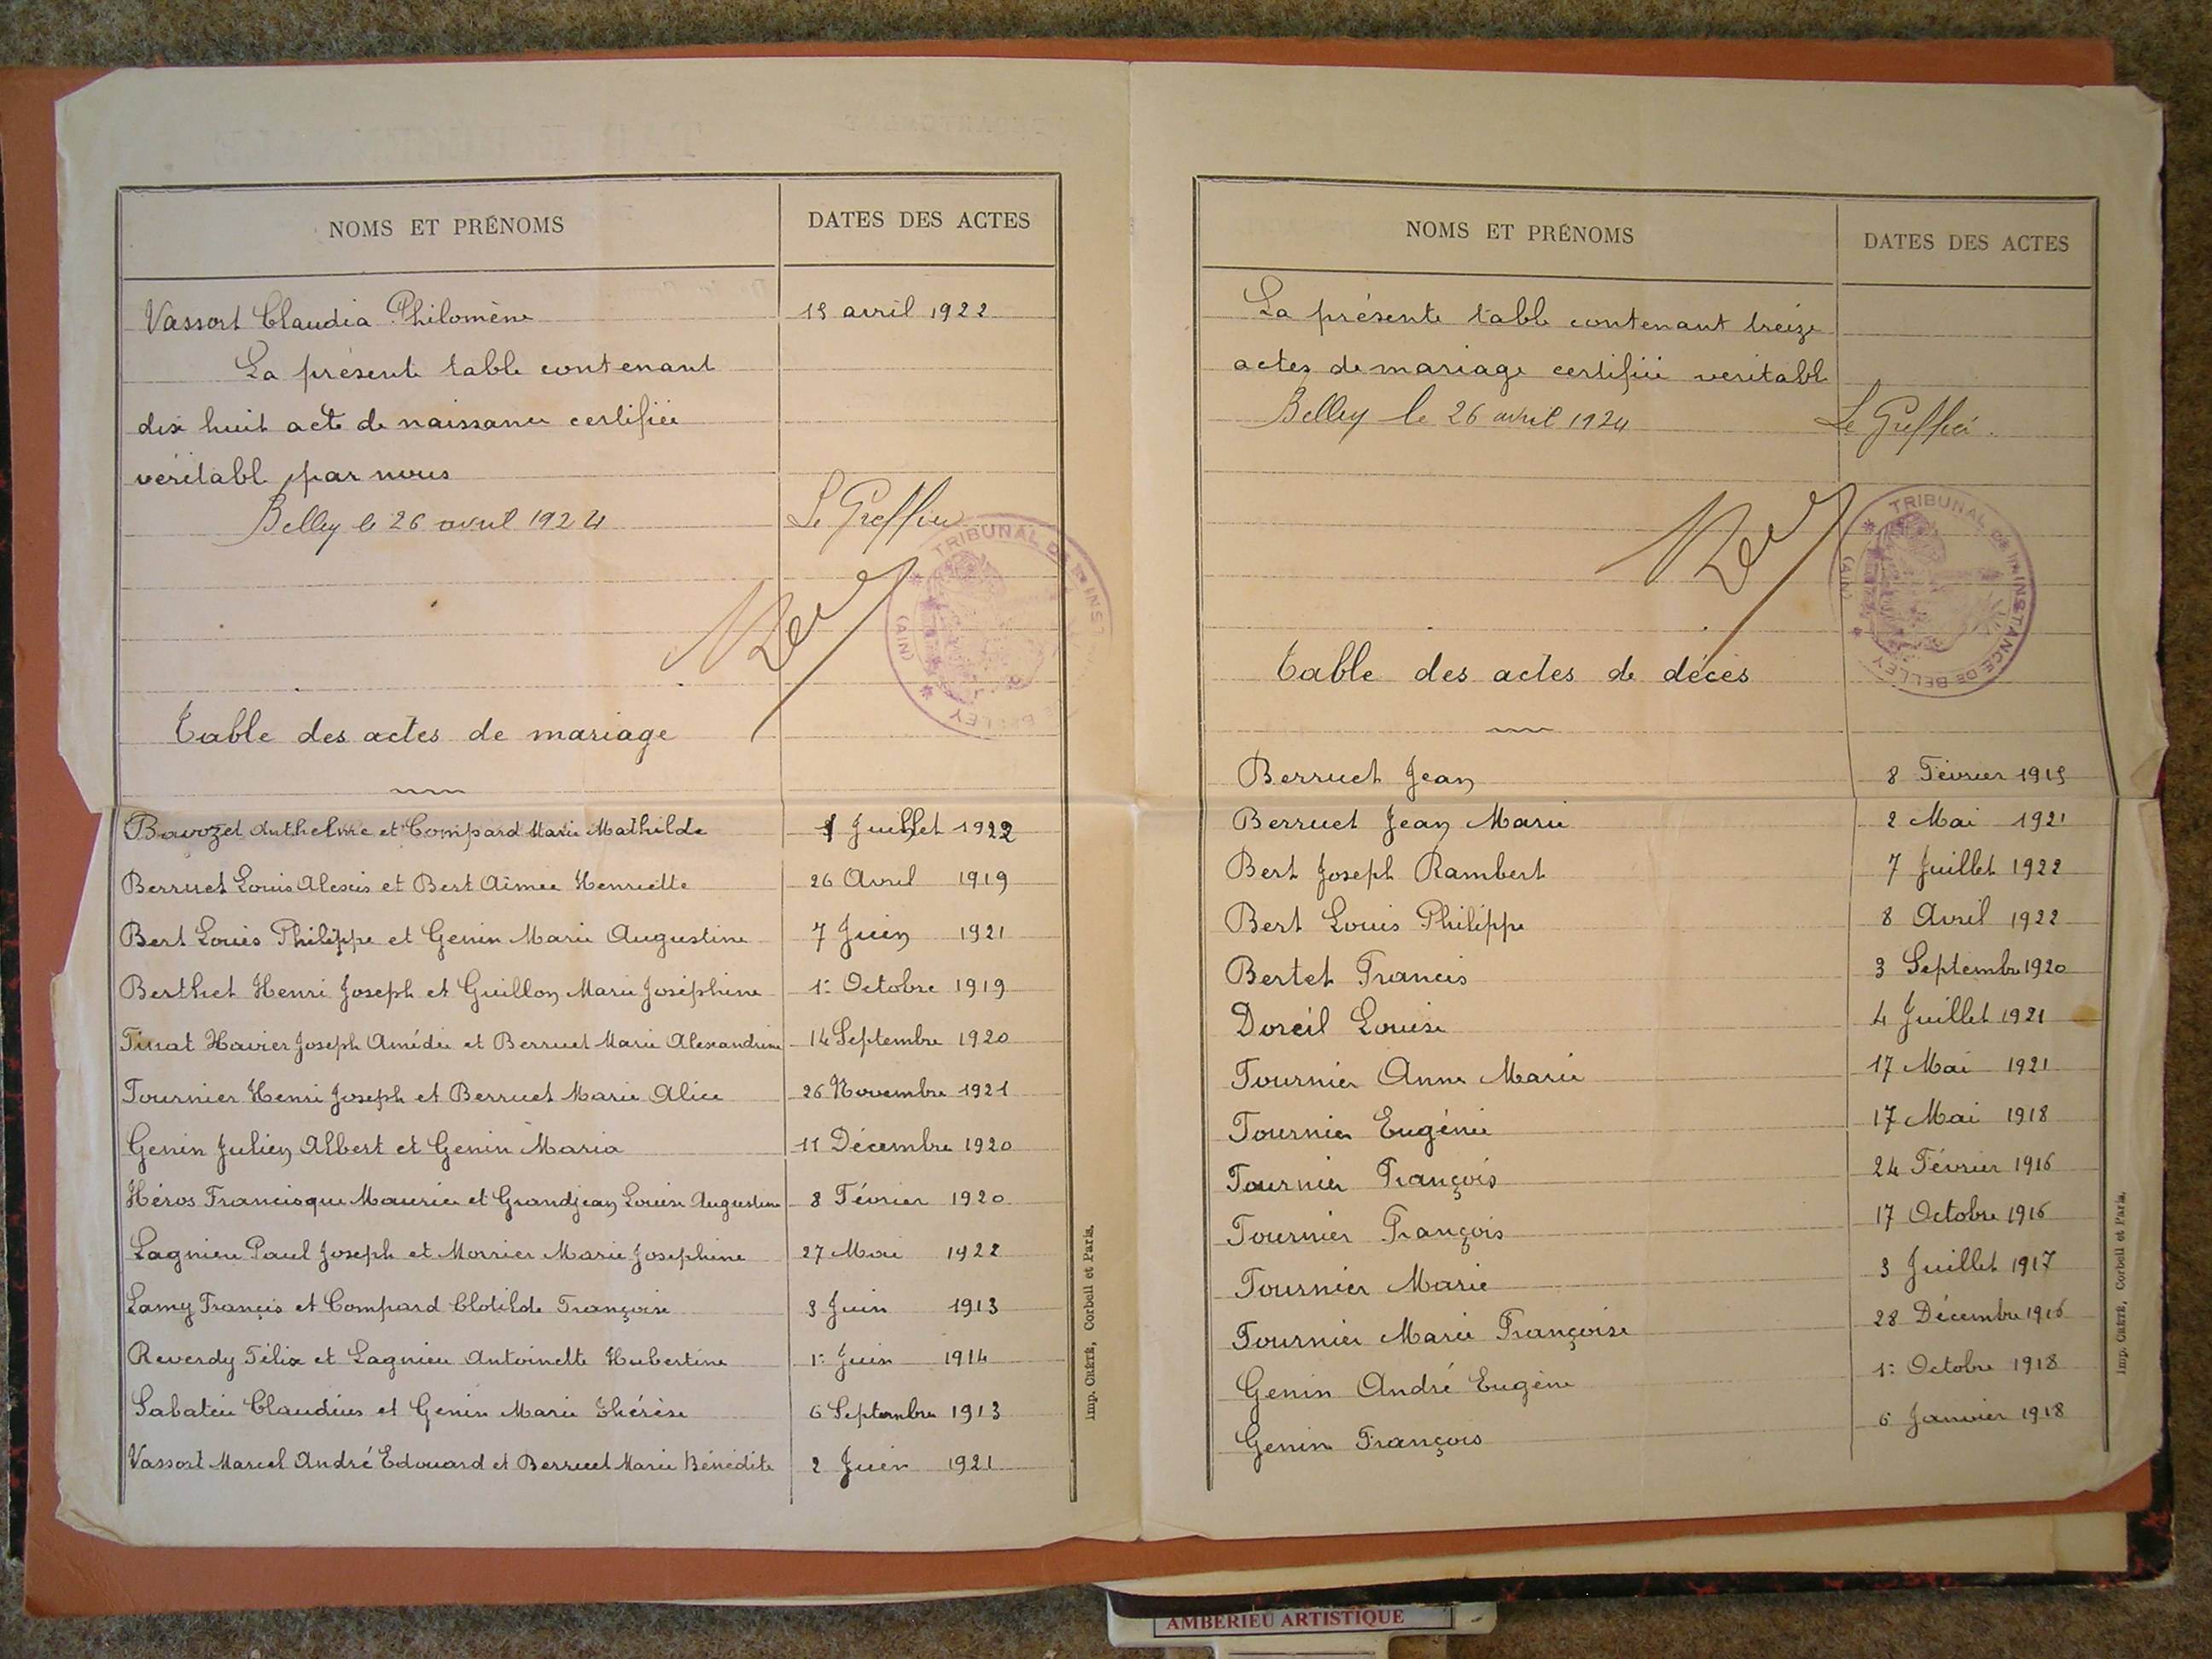 NOMS ET PRÉNOMS
DATES DES ACTES
Vassort Claudia Philomène 19 avril 1922
La présente table contenant
dix huit acte de naissance certifiée
véritable par nous
Belley le 26 avril 1924 Le Greffier
TRIBUNAL DE 1re INST DE BELLEY (AIN)
Table des actes de mariage
Bavozet Anthelme et Compard Marie Mathilde 1 Juillet 1922
Berruet Louis Alexis et Bert Aimée Henriette 26 Avril 1919
Bert Louis Philippe et Genin Marie Augustine 7 Juin 1921
Berthet Henri Joseph et Guillon Marie Joséphine 1: Octobre 1919
Xavier Joseph Amédée et Berruet Marie Alexandrine 14 Septembre 1920
Tournier Henri Joseph et Berruet Marie Alice 26 Novembre 1921
Genin Julien Albert et Genin Maria 11 Décembre 1920
Héros Francisque Maurice et Grandjean Louise Augustine 8 Février 1920
Lagnieu Paul Joseph et Morrier Marie Joséphine 27 Mai 1922
Lamy Francis et Compard Clotilde Françoise 3 Juin 1913
Reverdy Félix et Lagnieu Antoinette Hubertine 1: Juin 1914
Sabatier Claudius et Genin Marie Thérèse 6 Septembre 1913
Vassort Marcel André Edouard et Berruet Marie Bénédite 2 Juin 1921
Imp. CRÉTÉ, Corbeil et Paris.
NOMS ET PRÉNOMS
DATES DES ACTES
La présente table contenant treize
actes de mariage certifiée veritable
Belley le 26 avril 1924 Le Greffier.
TRIBUNAL DE 1re INSTANCE DE BELLEY (AIN)
Table des actes de décès
Berruet Jean 8 Février 1915
Berruet Jean Marie 2 Mai 1921
Bert Joseph Rambert 7 Juillet 1922
Bert Louis Philippe 8 Avril 1922
Bertet Francis 3 Septembre 1920
Doreil Louise 4 Juillet 1921
Tournier Anne Marie 17 Mai 1921
Tournier Eugénie 17 Mai 1918
Tournier François 24 Février 1916
Tournier François 17 Octobre 1916
Tournier Marie 3 Juillet 1917
Tournier Marie Françoise 28 Décembre 1916
Genin André Eugène 1: Octobre 1918
Genin François 6 Janvier 1918
Imp. CRÉTÉ, Corbeil et Paris.
AMBERIEU ARTISTIQUE